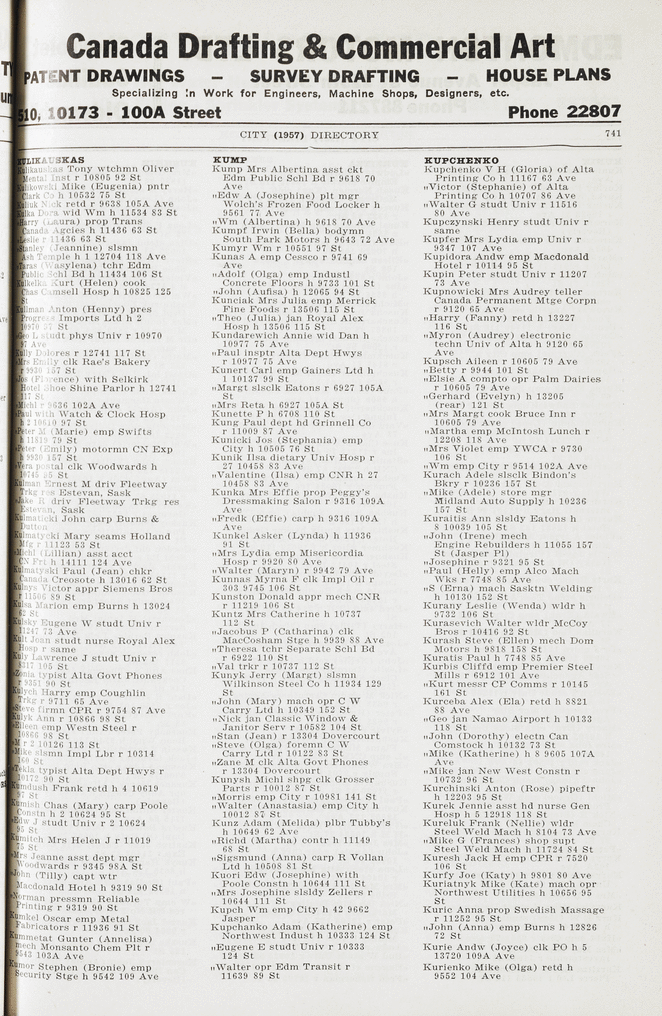 Canada Drafting & Commercial Art
PATENT DRAWINGS – SURVEY DRAFTING – HOUSE PLANS
Specializing in Work for Engineers, Machine Shops, Designers, etc.
510, 10173 - 100A Street Phone 22807
CITY (1957) DIRECTORY 741
KULIKAUSKAS
Kulikauskas Tony wtchmn Oliver
Mental Inst r 10805 92 St
Kulikowski Mike (Eugenia) pntr
Clark Co h 10532 75 St
Kuliuk Nick retd r 9638 105A Ave
Kulka Dora wid Wm h 11534 83 St
"Harry (Laura) prop Trans
Canada Agcies h 11436 63 St
"Leslie r 11436 63 St
"Stanley (Jeannine) slsmn
Ash Temple h 1 12704 118 Ave
"Taras (Wasylena) tchr Edm
Public Schl Bd h 11434 106 St
Kulkelka Kurt (Helen) cook
Chas Camsell Hosp h 10825 125
St
Kullman Anton (Henny) pres
Progress Imports Ltd h 2
10970 97 St
"Geo L studt phys Univ r 10970
97 Ave
Kully Dolores r 12741 117 St
"Mrs Emily clk Rae's Bakery
r 9930 157 St
"Jos (Florence) with Selkirk
Hotel Shoe Shine Parlor h 12741
117 St
"Michl r 9636 102A Ave
"Paul with Watch & Clock Hosp
h 2 10510 97 St
"Peter M (Marie) emp Swifts
h 11819 79 St
"Peter (Emily) motormn CN Exp
h 9930 157 St
"Vera postal clk Woodwards h
10745 95 St
Kulman Ernest M driv Fleetway
Trkg res Estevan, Sask
"Jake R driv Fleetway Trkg res
Estevan, Sask
Kulmaticki John carp Burns &
Dutton
Kulmatycki Mary seams Holland
Mfg r 11123 53 St
"Michl (Lillian) asst acct
CN Frt h 14111 124 Ave
Kulmatyski Paul (Jean) chkr
Canada Creosote h 13016 62 St
Victor appr Siemens Bros
r 11506 89 St
Kulsa Marion emp Burns h 13024
62 St
Kulsky Eugene W studt Univ r
11247 73 Ave
Joan studt nurse Royal Alex
Hosp r same
Kuly Lawrence J studt Univ r
8317 105 St
"Zonia typist Alta Govt Phones
r 9351 90 St
Kulych Harry emp Coughlin
Trkg r 9711 65 Ave
"Steve firmn CPR r 9754 87 Ave
Kulyk Ann r 10866 98 St
"Eileen emp Westn Steel r
10866 98 St
"M r 2 10126 113 St
"Mike slsmn Impl Lbr r 10314
160 St
"Tekla typist Alta Dept Hwys r
10172 90 St
Kumdush Frank retd h 4 10619
97 St
Kumish Chas (Mary) carp Poole
Constn h 2 10624 95 St
"Edw J studt Univ r 2 10624
95 St
Kumitch Mrs Helen J r 11019
75 St
"Mrs Jeanne asst dept mgr
Woodwards r 9345 98A St
"John (Tilly) capt wtr
Macdonald Hotel h 9319 90 St
"Norman pressmn Reliable
Printing r 9319 90 St
Kumkel Oscar emp Metal
Fabricators r 11936 91 St
Kummetat Gunter (Annelisa)
mech Monsanto Chem Plt r
9543 103A Ave
Kumor Stephen (Bronie) emp
Security Stge h 9542 109 Ave
KUMP
Kump Mrs Albertina asst ckt
Edm Public Schl Bd r 9618 70
Ave
"Edw A (Josephine) plt mgr
Wolch's Frozen Food Locker h
9561 77 Ave
"Wm (Albertina) h 9618 70 Ave
Kumpf Irwin (Bella) bodymn
South Park Motors h 9643 72 Ave
Kumyr Wm r 10551 97 St
Kunas A emp Cessco r 9741 69
Ave
"Adolf (Olga) emp Industl
Concrete Floors h 9733 101 St
"John (Aufisa) h 12065 94 St
Kunciak Mrs Julia emp Merrick
Fine Foods r 13506 115 St
"Theo (Julia) jan Royal Alex
Hosp h 13506 115 St
Kundarewich Annie wid Dan h
10977 75 Ave
"Paul insptr Alta Dept Hwys
r 10977 75 Ave
Kunert Carl emp Gainers Ltd h
1 10137 99 St
"Margt slsclk Eatons r 6927 105A
St
"Mrs Reta h 6927 105A St
Kunette P h 6708 110 St
Kung Paul dept hd Grinnell Co
r 11009 87 Ave
Kunicki Jos (Stephania) emp
City h 10505 76 St
Kunik Ilsa dietary Univ Hosp r
27 10458 83 Ave
"Valentine (Ilsa) emp CNR h 27
10458 83 Ave
Kunka Mrs Effie prop Peggy's
Dressmaking Salon r 9316 109A
Ave
"Fredk (Effie) carp h 9316 109A
Ave
Kunkel Asker (Lynda) h 11936
91 St
"Mrs Lydia emp Misericordia
Hosp r 9920 80 Ave
"Walter (Maryn) r 9942 79 Ave
Kunnas Myrna F clk Impl Oil r
303 9745 106 St
Kunston Donald appr mech CNR
r 11219 106 St
Kuntz Mrs Catherine h 10737
112 St
"Jacobus P (Catharina) clk
MacCosham Stge h 9939 88 Ave
"Theresa tchr Separate Schl Bd
r 6922 110 St
"Val trkr r 10737 112 St
Kunyk Jerry (Margt) slsmn
Wilkinson Steel Co h 11934 129
St
"John (Mary) mach opr C W
Carry Ltd h 10349 152 St
"Nick jan Classic Window &
Janitor Serv r 10582 104 St
"Stan (Jean) r 13304 Dovercourt
"Steve (Olga) foremn C W
Carry Ltd r 10122 83 St
"Zane M clk Alta Govt Phones
r 13304 Dovercourt
Kunysh Michl shpg clk Grosser
Parts r 10012 87 St
"Morris emp City r 10981 141 St
"Walter (Anastasia) emp City h
10012 87 St
Kunz Adam (Melida) plbr Tubby's
h 10649 62 Ave
"Richd (Martha) contr h 11149
68 St
"Sigsmund (Anna) carp R Vollan
Ltd h 10508 81 St
Kuori Edw (Josephine) with
Poole Constn h 10644 111 St
"Mrs Josephine slsldy Zellers r
10644 111 St
Kupch Wm emp City h 42 9662
Jasper
Kupchanko Adam (Katherine) emp
Northwest Indust h 10333 124 St
"Eugene E studt Univ r 10333
124 St
"Walter opr Edm Transit r
11639 89 St
KUPCHENKO
Kupchenko V H (Gloria) of Alta
Printing Co h 11167 63 Ave
"Victor (Stephanie) of Alta
Printing Co h 10707 86 Ave
"Walter G studt Univ r 11516
80 Ave
Kupczynski Henry studt Univ r
same
Kupfer Mrs Lydia emp Univ r
9347 107 Ave
Kupidora Andw emp Macdonald
Hotel r 10114 95 St
Kupin Peter studt Univ r 11207
73 Ave
Kupnowicki Mrs Audrey teller
Canada Permanent Mtge Corpn
r 9120 65 Ave
"Harry (Fanny) retd h 13227
116 St
"Myron (Audrey) electronic
techn Univ of Alta h 9120 65
Ave
Kupsch Aileen r 10605 79 Ave
"Betty r 9944 101 St
"Elsie A compto opr Palm Dairies
r 10605 79 Ave
"Gerhard (Evelyn) h 13205
(rear) 121 St
"Mrs Margt cook Bruce Inn r
10605 79 Ave
"Martha emp McIntosh Lunch r
12208 118 Ave
"Mrs Violet emp YWCA r 9730
106 St
"Wm emp City r 9514 102A Ave
Kurach Adele slsclk Bindon's
Bkry r 10236 157 St
"Mike (Adele) store mgr
Midland Auto Supply h 10236
157 St
Kuraitis Ann slsldy Eatons h
8 10039 105 St
"John (Irene) mech
Engine Rebuilders h 11055 157
St (Jasper Pl)
"Josephine r 9321 95 St
"Paul (Helly) emp Alco Mach
Wks r 7748 85 Ave
"S (Erna) mach Sasktn Welding
h 10130 152 St
Kurany Leslie (Wenda) wldr h
9732 106 St
Kurasevich Walter wldr McCoy
Bros r 10416 92 St
Kurash Steve (Ellen) mech Dom
Motors h 9818 158 St
Kuratis Paul h 7748 85 Ave
Kurbis Cliffd emp Premier Steel
Mills r 6912 101 Ave
"Kurt messr CP Comms r 10145
161 St
Kurceba Alex (Ela) retd h 8821
88 Ave
"Geo jan Namao Airport h 10133
118 St
"John (Dorothy) electn Can
Comstock h 10132 73 St
"Mike (Katherine) h 8 9605 107A
Ave
"Mike jan New West Constn r
10732 96 St
Kurchinski Anton (Rose) pipeftr
h 12203 95 St
Kurek Jennie asst hd nurse Gen
Hosp h 5 12918 118 St
Kureluk Frank (Nellie) wldr
Steel Weld Mach h 8104 73 Ave
"Mike G (Frances) shop supt
Steel Weld Mach h 11724 84 St
Kuresh Jack H emp CPR r 7520
106 St
Kurfy Joe (Katy) h 9801 80 Ave
Kuriatnyk Mike (Kate) mach opr
Northwest Utilities h 10656 95
St
Kuric Anna prop Swedish Massage
r 11252 95 St
"John (Anna) emp Burns h 12826
72 St
Kurie Andw (Joyce) clk PO h 5
13720 109A Ave
Kurienko Mike (Olga) retd h
9552 104 Ave